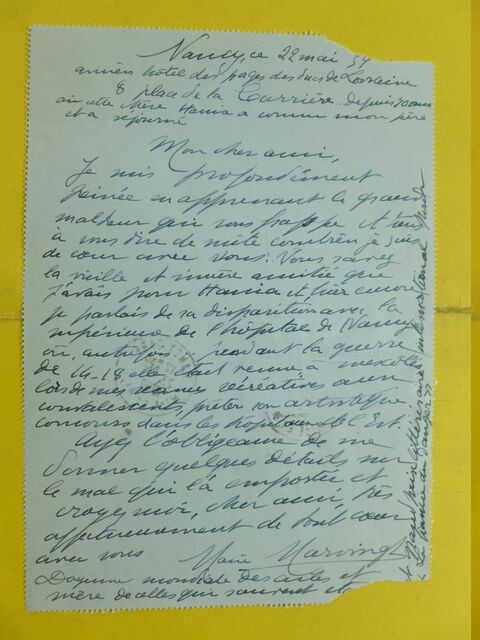 Nancy, ce 22 mai 54
ancien hôtel des pages des ducs de Lorraine
8 place de la Carrière. depuis 70 ans
où cette chère Hania a connu mon père
et a séjourné
Mon cher ami,
Je suis profondément
peinée en apprenant le grand
malheur qui vous frappe et tiens
à vous dire de suite combien je suis
de cœur avec vous. Vous savez
la vieille et sincère amitié que
j'avais pour Hania et, hier encore
je parlais de sa disparition avec la
supérieure de l'hôpital de Nancy
où, autrefois, pendant la guerre
de 14-18, elle était venue
lors de mes séances récréatives aux
convalescents, prêter son artistique
concours dans les hôpitaux de l'Est.
Ayez l'obligeance de me
donner quelques détails sur
le mal qui l'a emportée et
croyez-moi, cher ami, très
affectueusement de tout cœur
avec vous Marie Marvingt
Doyenne mondiale des ailes et
mère de celles qui sauvent et
grand prix littéraire international
« La fiancée du danger »